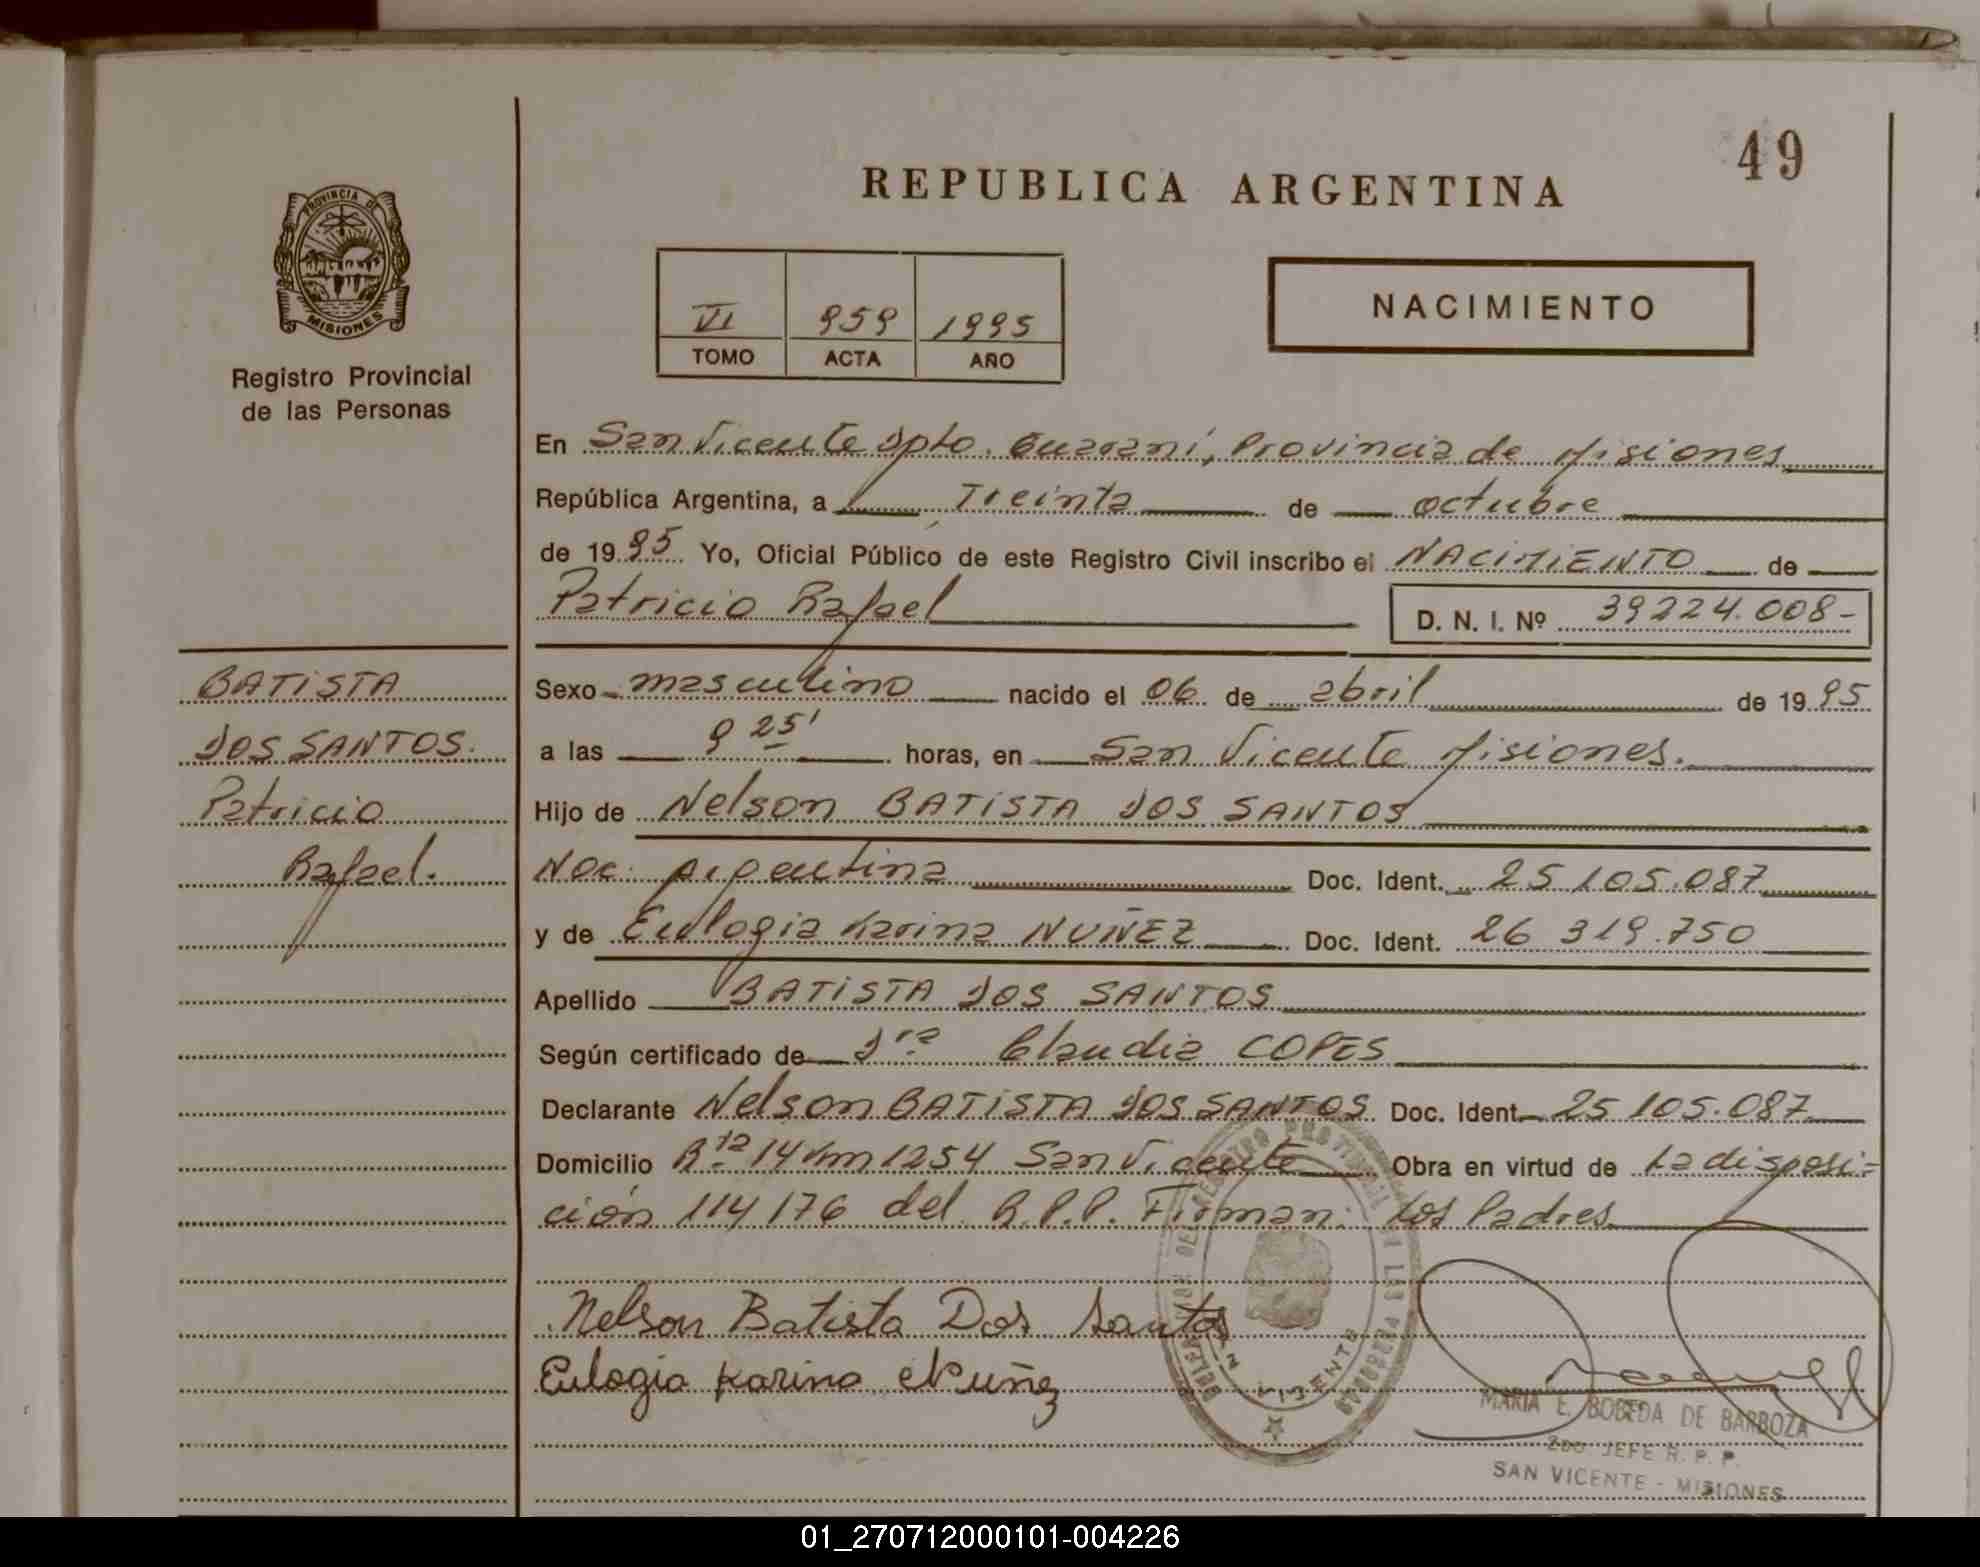 49
REPUBLICA ARGENTINA
PROVINCIA DE
MISIONES
Registro Provincial
de las Personas
VI 959 1995
TOMO ACTA AÑO
NACIMIENTO
En San Vicente Dpto. Guaraní, Provincia de Misiones
República Argentina, a Treinta de octubre
de 1995 Yo, Oficial Público de este Registro Civil inscribo el NACIMIENTO de
Patricio Rafael D. N. I. Nº 39224.008-
BATISTA
DOS SANTOS.
Patricio
Rafael.
Sexo masculino nacido el 06 de abril de 1995
a las 9 25' horas, en San Vicente Misiones.
Hijo de Nelson BATISTA DOS SANTOS
Nac. Argentina Doc. Ident. 25 105.087
y de Eulogia Karina NUÑEZ Doc. Ident. 26 319.750
Apellido BATISTA DOS SANTOS
Según certificado de Dra Claudia COPES
Declarante Nelson BATISTA DOS SANTOS Doc. Ident. 25 105.087
Domicilio Rta 14 Km 1254 San Vicente Obra en virtud de La disposi-
ción 114/176 del R.P.P. Firman: Los Padres
Nelson Batista Dos Santos
Eulogia Karina Nuñez
MARIA E. BOBEDA DE BARBOZA
2DO JEFE R. P. P.
SAN VICENTE - MISIONES
01_270712000101-004226